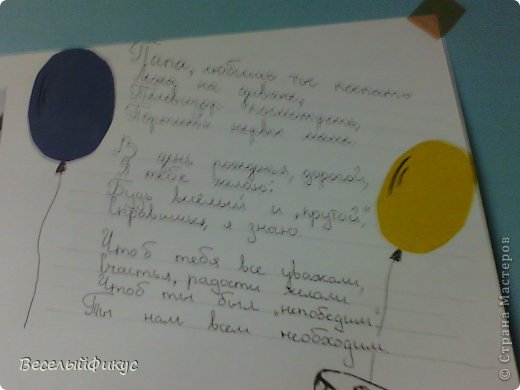 Папа, любишь ты поспать
Лежа на диване,
Телевизор посмотреть,
Потрепать нервы маме.
В день рожденья, дорогой,
Я тебе желаю:
Будь весёлый и „крутой“,
Справишься, я знаю.
Чтоб тебя все уважали,
Счастья, радости желали,
Чтоб ты был „непобедим“,
Ты нам всем необходим.
ВеселыйФикус
© Страна Мастеров